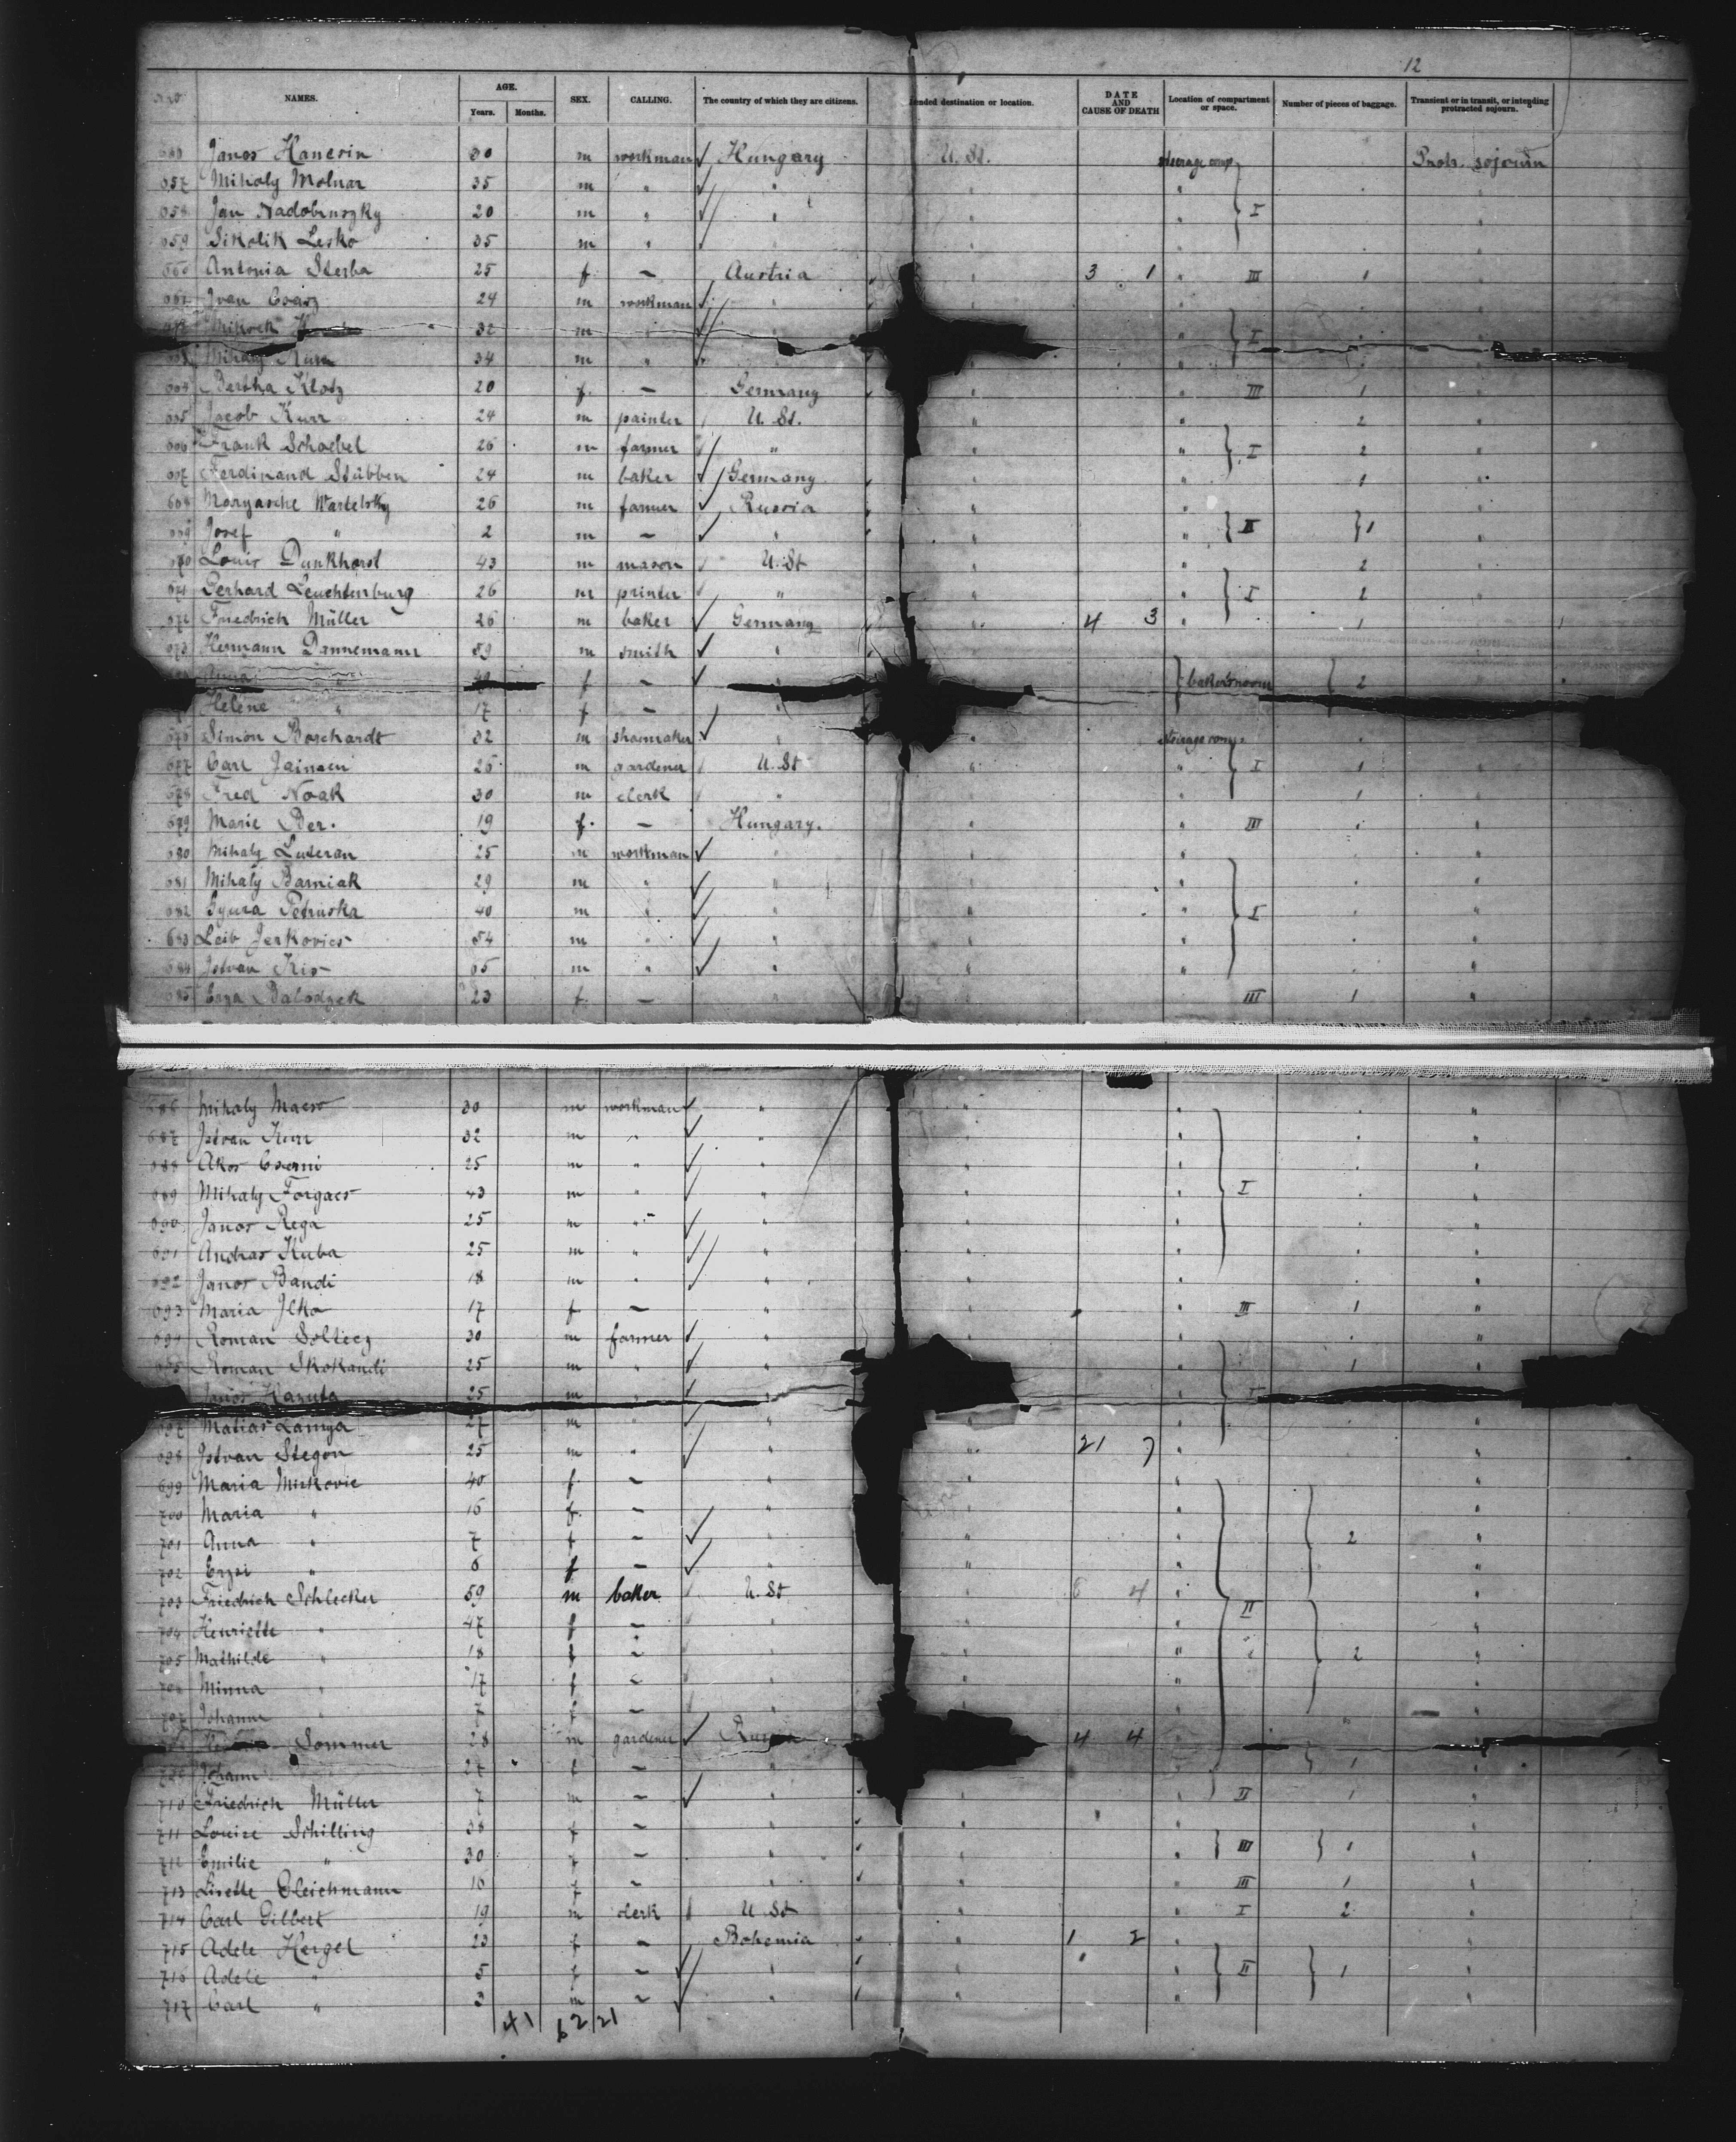 12
NAMES. AGE. Years. Months. SEX. CALLING. The country of which they are citizens. ended destination or location. DATE AND CAUSE OF DEATH Location of compartment or space. Number of pieces of baggage. Transient or in transit, or intending protracted sojourn.
Janos 30 m workman ✓ Hungary U. St. steerage comp. Protr. sojourn
657 Mihaly Molnar 35 m " ✓ " " "
658 Jan 20 m " ✓ " " " I "
659 Sikolik Lesko 35 m " ✓ " " " "
660 Antonia Sterba 25 f. — Austria " 3 1 " III 1 "
661 Ivan 24 m workman ✓ " " "
32 m " ✓ " I
Mihaly 34 m " ✓ " "
664 Bertha Klotz 20 f. — Germany " " III 1 "
665 Jacob Kurr 24 m painter U. St. " " 2 "
666 Frank Schoebel 26 m farmer " " " I 2 "
667 Ferdinand Stübben 24 m baker ✓ Germany " " 1 "
668 26 m farmer ✓ Russia " " "
669 Josef " 2 m — ✓ " " " II 1 "
670 Louis Dunkhorst 43 m mason U. St " " 2 "
671 Gerhard Leuchtenburg 26 m printer " " " I 2 "
672 Friedrich Müller 26 m baker ✓ Germany " 4 3 " 1
673 Hermann Dannemann 59 m smith ✓ " "
Anna " f — ✓ baker's room 2
Helene " 17 f — "
676 Simon Borchardt 32 m shoemaker ✓ " " steerage comp.
677 Carl 26 m gardener U. St " " I 1 "
678 Fred Noak 30 m clerk " " " 1 "
679 Marie Ber. 19 f. — Hungary. " " III " "
680 Mihaly Luteran 25 m workman ✓ " " " " "
681 Mihaly Barniak 29 m " ✓ " " " " "
682 Gyura Petruska 40 m " ✓ " " " I " "
683 Leib Jerkovics 54 m " ✓ " " " " "
684 Istvan Kis m " ✓ " " " " "
685 23 f. — " " III 1 "
686 Mihaly 30 m workman ✓ " " " " "
687 Istvan Kurr 32 m " ✓ " " " " "
688 Akos Cserni 25 m " ✓ " " " " "
689 Mihaly Forgacs 43 m " ✓ " " " I " "
690 Janos Rega 25 m " ✓ " " " " "
691 Andras Kuba 25 m " ✓ " " " " "
692 Janos Bandi 18 m " ✓ " " " " "
693 Maria Ilko 17 f — " " " III 1 "
694 Roman 30 m farmer ✓ " " " "
695 Roman Skokandi 25 m " ✓ " " 1 "
Janos 25 m " ✓ " " I
697 Matias 27 m " ✓ " " " " "
698 Istvan Stegon 25 m " ✓ " " 21 7 " "
699 Maria Mirkovic 40 f. — " " "
700 Maria " 16 f. — " " "
701 Anna " 7 f — ✓ " " " 2 "
702 Erzsi " 6 f — ✓ " " " "
703 Friedrich Schlecker 59 m baker U. St " 4 " "
704 Henriette " 47 f — " " " II "
705 Mathilde " 18 f — " " " 2 "
706 Minna " 17 f — " " " "
707 Johanne " 7 f — " " " "
Sommer 28 m gardener ✓ 4 4 "
Johann 27 f — " " 1 "
710 Friedrich Müller 7 m — ✓ " " " II 1 "
711 Louise Schilling 38 f — " " " "
712 Emilie " 30 f — " " " III 1 "
713 Lisette Gleichmann 16 f — " " " III 1 "
714 Carl Gilbert 19 m clerk U St " " I 2 "
715 Adele Hergel 23 f — Bohemia " 1 2 " "
716 Adele " 5 f — ✓ " " " II 1 "
717 Carl " 3 m — ✓ " " " "
41 62 21